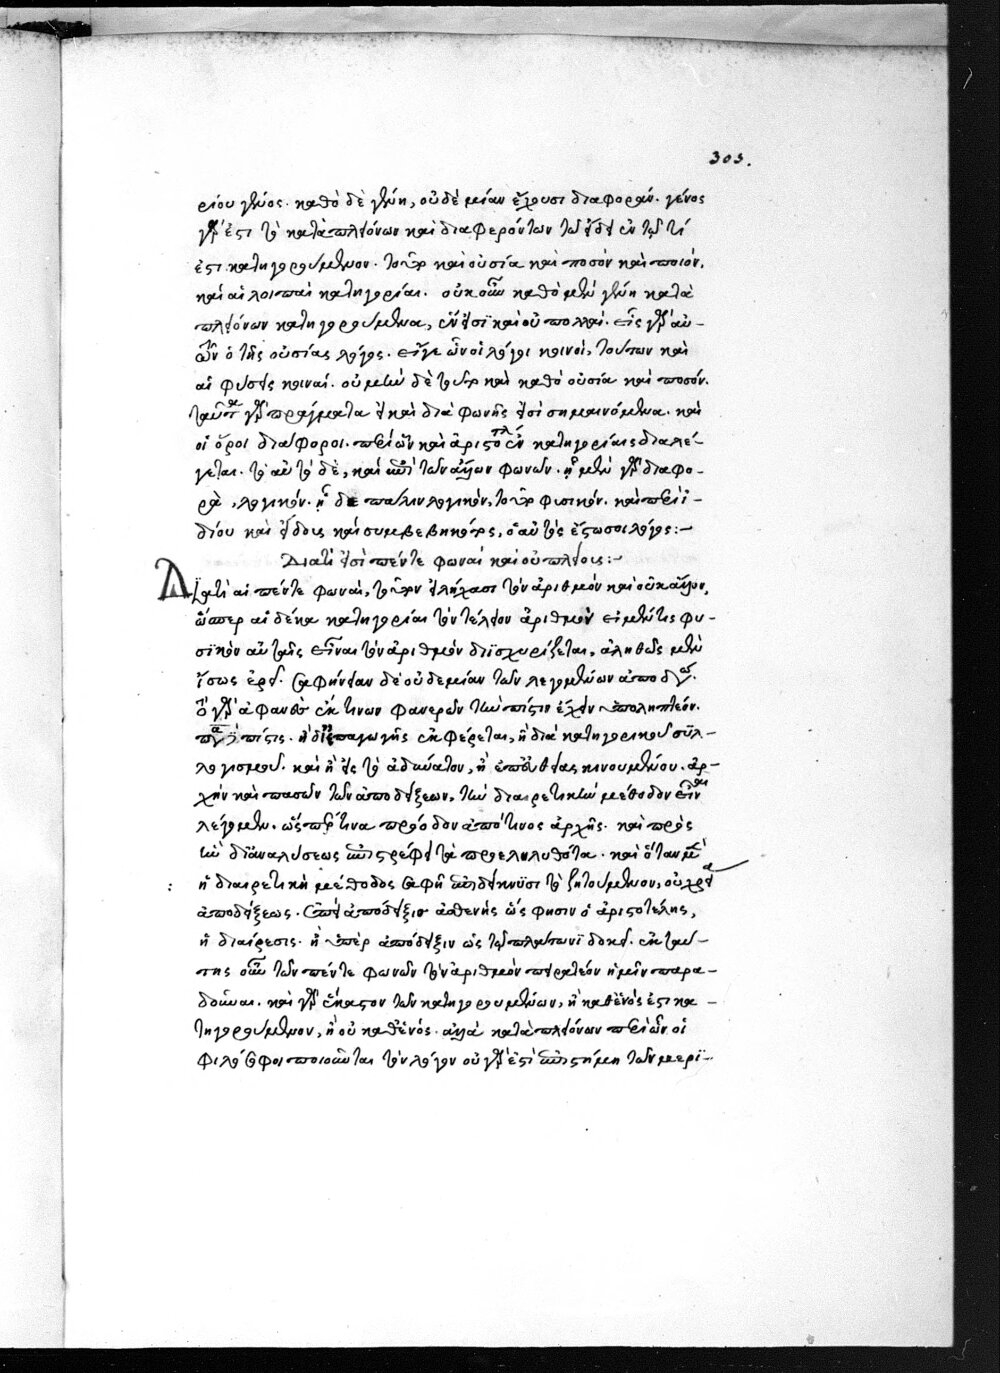 303.
ρίου γένους. καθὸ δὲ γένη, οὐδὲ μίαν ἔχουσι διαφοράν. γένος
γάρ ἐστι τὸ κατὰ πλειόνων καὶ διαφερόντων τῷ εἴδει ἐν τῷ τί
ἐστι κατηγορούμενον. καὶ οὐσία καὶ ποσὸν καὶ ποιόν,
καὶ αἱ λοιπαὶ κατηγορίαι. οὐκοῦν καθὸ μὲν γένη κατὰ
πλειόνων κατηγορούμενα, ἕν εἰσι καὶ οὐ πολλαί. εἷς γὰρ αὐ-
τῶν ὁ τῆς οὐσίας λόγος. εἴγε ὧν οἱ λόγοι κοινοί, τούτων καὶ
αἱ φύσεις κοιναί. οὐ μὲν δὲ καὶ καθὸ οὐσία καὶ ποσόν.
ταῦτα γὰρ πράγματα καὶ διὰ φωνῆς εἰσὶ σημαινόμενα. καὶ
οἱ ὅροι διάφοροι. περὶ ὧν καὶ ἀριστοτέλης ἐν κατηγορίαις διαλέ-
γεται. τὸ αὐτὸ δὲ, καὶ ἐπὶ τῶν ἄλλων φωνῶν. ἡ μὲν γὰρ διαφο-
ρὰ, λογικόν. ἡ δὲ πάλιν λογικὸν, φυσικόν. καὶ περὶ ἰ-
δίου καὶ εἴδους καὶ συμβεβηκότος, ὁ αὐτὸς ἔστω σοι λόγος:-
Διατί εἰσὶ πέντε φωναὶ καὶ οὐ πλείους:-
Διατί αἱ πέντε φωναὶ, τοῦτον εἰλήχασι τὸν ἀριθμὸν καὶ οὐκ ἄλλον,
ὥσπερ αἱ δέκα κατηγορίαι τὸν τέλειον ἀριθμόν εἰ μέν τις φυ-
σικὸν αὐταῖς εἶναι τὸν ἀριθμὸν διϊσχυρίζεται, ἀληθῶς μὲν
ἴσως ἐρεῖ. σαφήνειαν δὲ οὐδεμίαν τῶν λεγομένων ἀποδώσει.
ὁ γὰρ ἀφανὲς ἔκ τινων φανερῶν τὴν πίστιν ἔχειν ὑποληπτέον.
πᾶσα πίστις. ἢ δι' ἐπαγωγῆς ἐκφέρεται, ἢ διὰ κατηγορικοῦ συλ-
λογισμοῦ. καὶ ἢ εἰς τὸ ἀδύνατον, ἢ ἐπ' εὐθείας κινουμένου. ἀρ-
χὴν καὶ πασῶν τῶν ἀποδείξεων, τὴν διαιρετικὴν μέθοδον εἶναι
λέγομεν. ὥσπερ τινα πρόοδον ἀπό τινος ἀρχῆς. καὶ πρὸς
τὴν δι' ἀναλύσεως ἐπιστρέφει τὰ προεληλυθότα. καὶ ὅταν μὲν
ἡ διαιρετικὴ μέθοδος σαφῆ ἐπιδείκνυσι τὸ ζητούμενον, οὐ χρεία
ἀποδείξεως. ἐπεὶ ἀπόδειξις ἀσθενής ὥς φησιν ὁ ἀριστοτέλης,
ἡ διαίρεσις. ἢ ὑπὲρ ἀπόδειξιν ὡς τῷ πλάτωνι δοκεῖ. ἐκ ταύ-
της οὖν τῶν πέντε φωνῶν τὸν ἀριθμὸν πειρατέον ἡμῖν παρα-
δοῦναι. καὶ γὰρ ἕκαστον τῶν κατηγορουμένων, ἢ καθ' ἑνός ἐστι κα-
τηγορούμενον, ἢ οὐ καθ' ἑνός. ἀλλὰ κατὰ πλειόνων περὶ ὧν οἱ
φιλόσοφοι ποιοῦνται τὸν λόγον οὐ γάρ ἐστι ἐπιστήμη τῶν μερι-